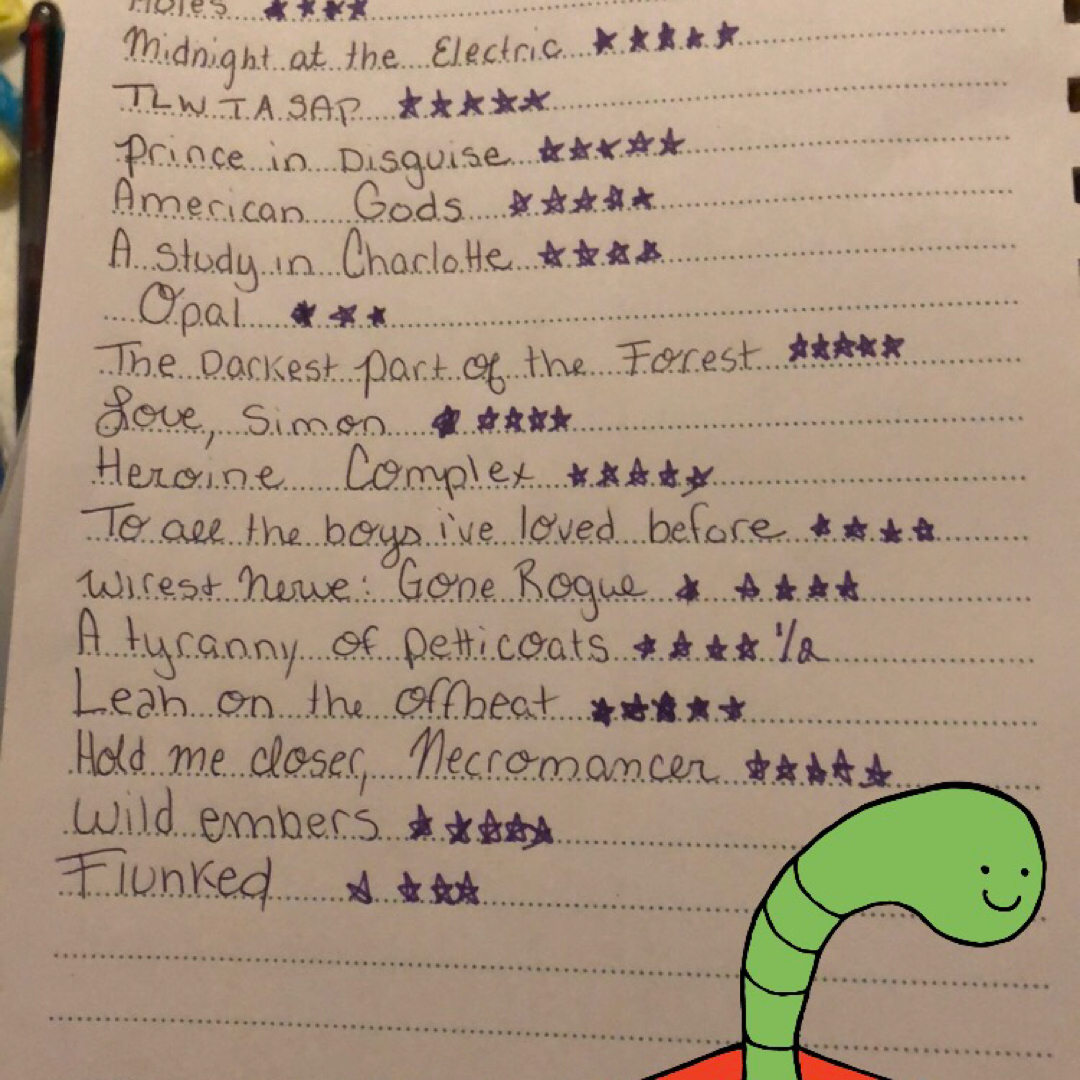 Holes ★★★★
Midnight at the Electric ★★★★★
TLWTASAP ★★★★★
Prince in Disguise ★★★★★
American Gods ★★★★★
A study in Charlotte ★★★★
Opal ★★★
The Darkest part of the Forest ★★★★★
Love, Simon ★★★★★
Heroine Complex ★★★★★
To all the boys i've loved before ★★★★
Wirest Nerve: Gone Rogue ★★★★★
A tyranny of petticoats ★★★★ 1/2
Leah on the offbeat ★★★★★
Hold me closer, Necromancer ★★★★★
Wild embers ★★★★★
Flunked ★★★★